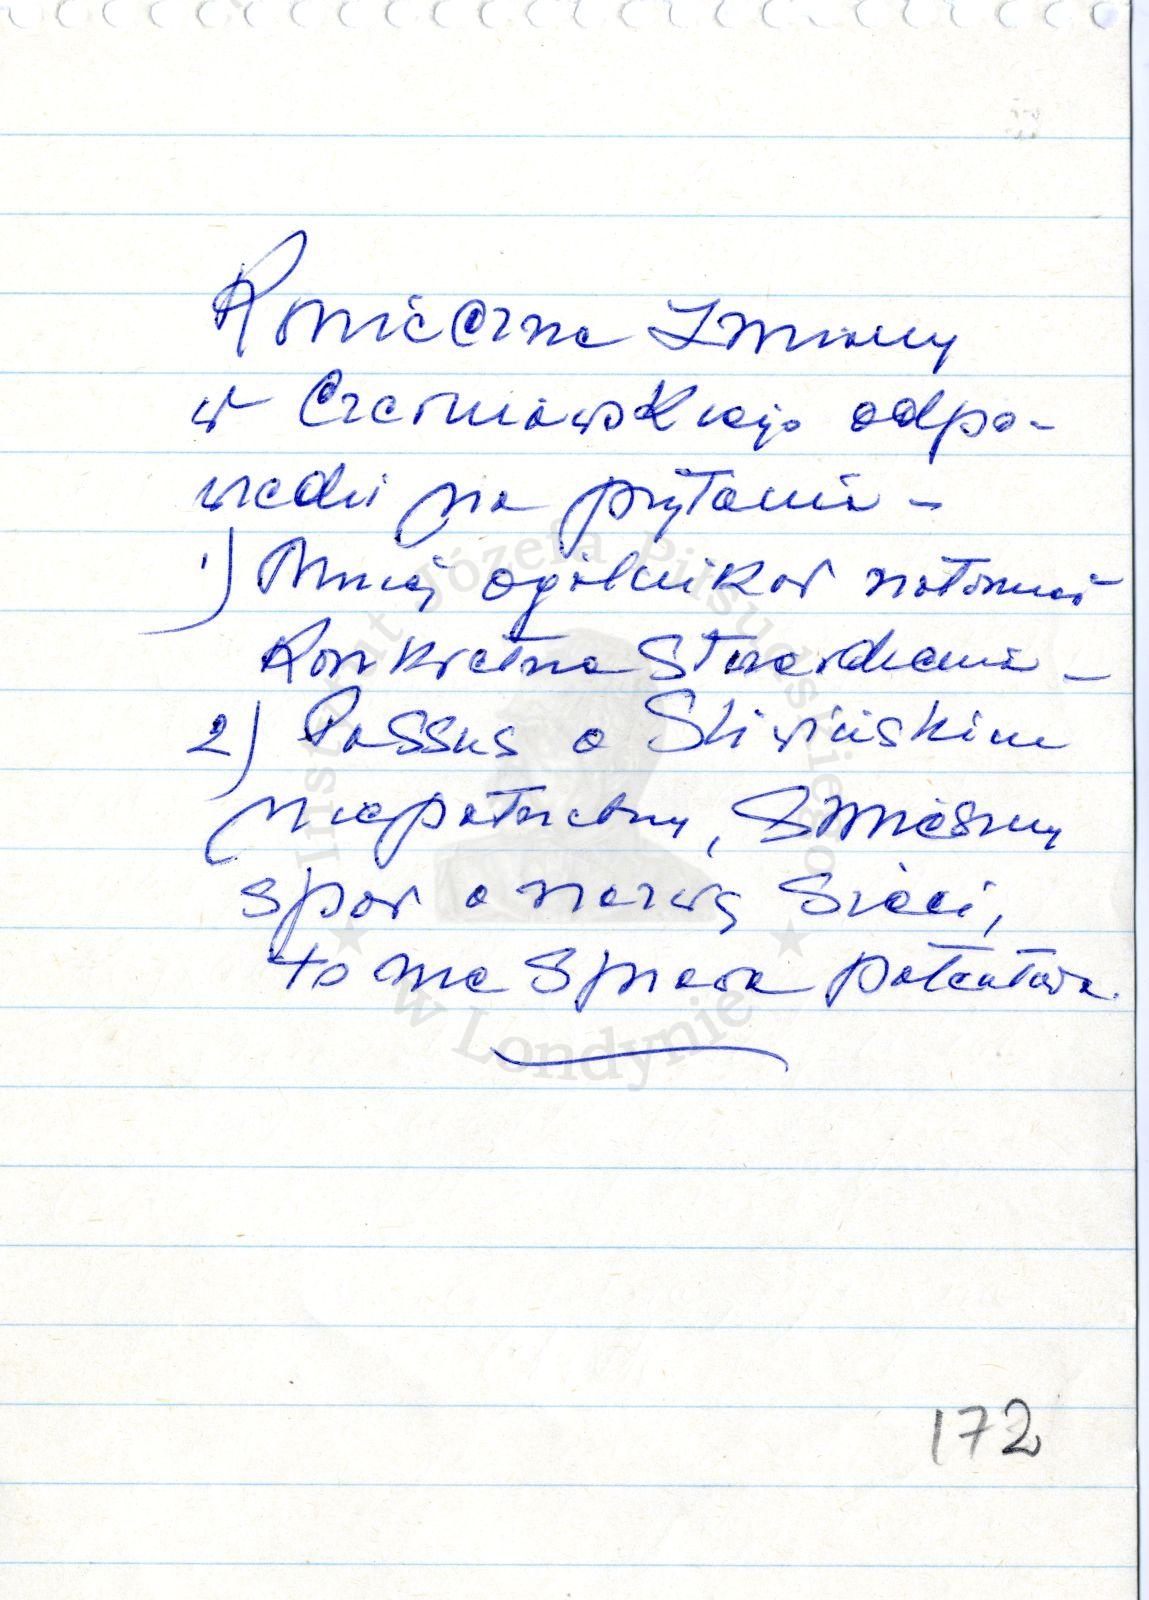 Konieczne zmiany
w Czerniawskiego odpo-
wiedzi na pytania -
1) Mniej ogólników natomiast
Konkretne stwierdzenia -
2) Passus o Śliwińskim
niepotrzebny, śmieszny
spór o nazwę sieci,
to nie sprawa patentowa.
172
Instytut Józefa Piłsudskiego
w Londynie